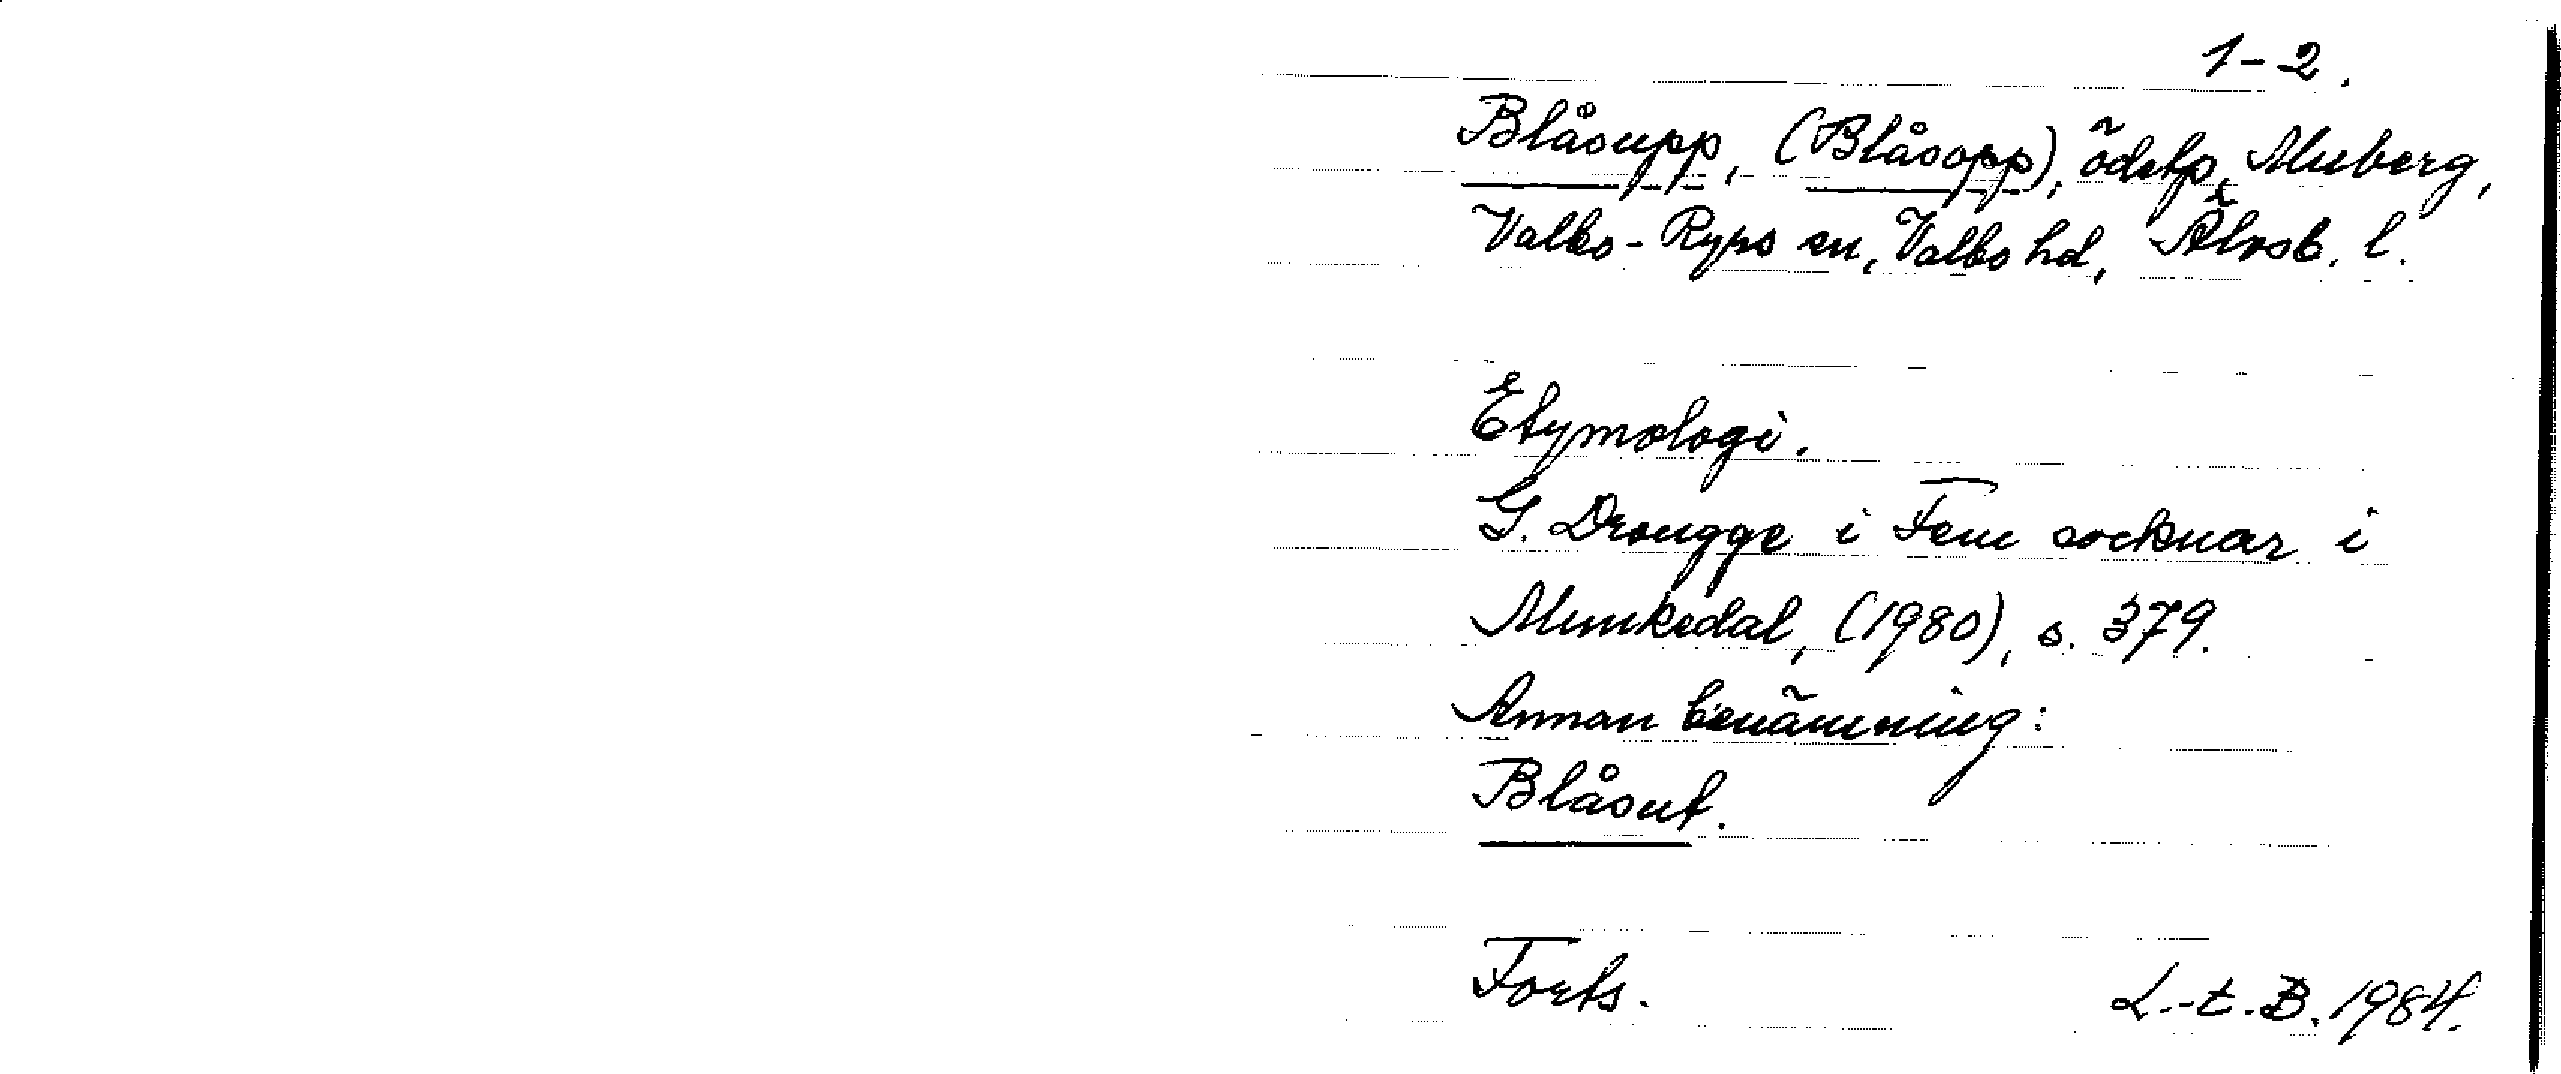 1-2.
Blåsupp, (Blåsopp), ödetp, Muberg,
Valbo-Ryrs sn, Valbo hd, Älvsb. l.
Etymologi.
G. Drougge i Fem socknar i
Munkedal, (1980), s. 379.
Annan benämning:
Blåsut.
Forts.
L.-t. B. 1984.